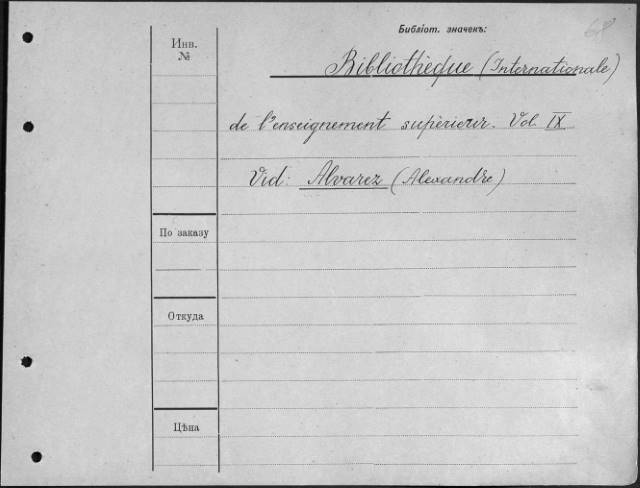 Библіот. значекъ:
68
Инв.
№
Bibliothèque (Internationale)
de l'enseignement supérieur. Vol. IX
Vid: Alvarez (Alexandre)
По заказу
Откуда
Цѣна